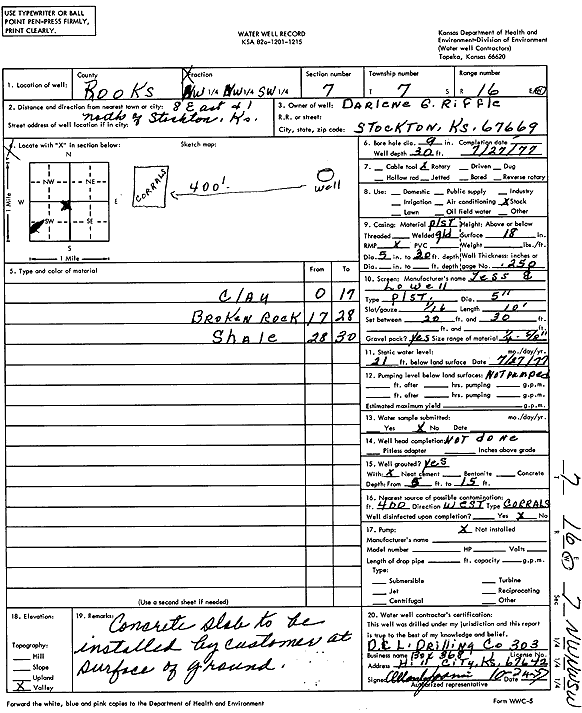 USE TYPEWRITER OR BALL
POINT PEN-PRESS FIRMLY,
PRINT CLEARLY.
WATER WELL RECORD
KSA 82a-1201-1215
Kansas Department of Health and
Environment-Division of Environment
(Water well Contractors)
Topeka, Kansas 66620
1. Location of well: County ROOKS Fraction NW 1/4 NW 1/4 SW 1/4 Section number 7 Township number T 7 S Range number R 16 E/W
2. Distance and direction from nearest town or city: 8 East 4 1
north of Stockton, Ks.
Street address of well location if in city:
3. Owner of well: DARLENE G. RIFFLE
R.R. or street:
City, state, zip code: STOCKTON, KS. 67669
4. Locate with "X" in section below:
Sketch map:
N
NW NE
W E
SW SE
S
1 Mile
1 Mile
CORRALS
400'
well
5. Type and color of material From To
CLAY 0 17
BROKEN ROCK 17 28
Shale 28 30
(Use a second sheet if needed)
6. Bore hole dia. 9 in. Completion date
Well depth 30 ft. 7/27/77
7. Cable tool X Rotary Driven Dug
Hollow rod Jetted Bored Reverse rotary
8. Use: Domestic Public supply Industry
Irrigation Air conditioning X Stock
Lawn Oil field water Other
9. Casing: Material PlST Height: Above or below
Threaded Welded gld Surface 18 in.
RMP X PVC Weight lbs./ft.
Dia. 5 in. to 20 ft. depth Wall Thickness: inches or
Dia. in. to ft. depth gage No. .250
10. Screen: Manufacturer's name Jess &
Lowell
Type PlST. Dia. 5"
Slot/gauze 1/16 Length 10'
Set between 20 ft. and 30 ft.
ft. and ft.
Gravel pack? yes Size range of material
11. Static water level: mo./day/yr.
21 ft. below land surface Date 7/27/77
12. Pumping level below land surfaces: NOT PUMPED
ft. after hrs. pumping g.p.m.
ft. after hrs. pumping g.p.m.
Estimated maximum yield g.p.m.
13. Water sample submitted: mo./day/yr.
Yes X No Date
14. Well head completion: NOT done
Pitless adapter Inches above grade
15. Well grouted? yes
With: X Neat cement Bentonite Concrete
Depth: From 5 ft. to 15 ft.
16. Nearest source of possible contamination:
ft. 400 Direction WEST Type CORRALS
Well disinfected upon completion? Yes X No
17. Pump: X Not installed
Manufacturer's name
Model number HP Volts
Length of drop pipe ft. capacity g.p.m.
Type:
Submersible Turbine
Jet Reciprocating
Centrifugal Other
18. Elevation:
Topography:
Hill
Slope
Upland
X Valley
19. Remarks: Concrete slab to be
installed by customer at
surface of ground.
20. Water well contractor's certification:
This well was drilled under my jurisdiction and this report
is true to the best of my knowledge and belief.
D.& L. Drilling Co 303
Business name Box 368 License No.
Address Hill City, Ks. 67642
Signed Date
Authorized representative
Forward the white, blue and pink copies to the Department of Health and Environment
Form WWC-5
T 7 R 16 E W Sec 7 NWNWSW
1/4 1/4 1/4